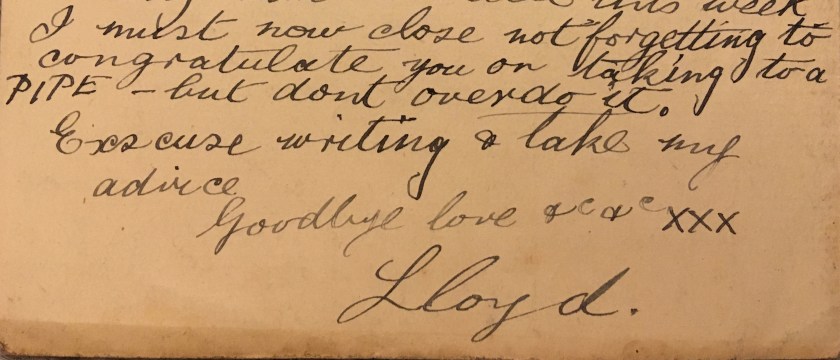 this week
I must now close not forgetting to
congratulate you on taking to a
PIPE - but dont overdo it.
Exscuse writing & take my
advice
Goodbye love &c &c XXX
Lloyd.